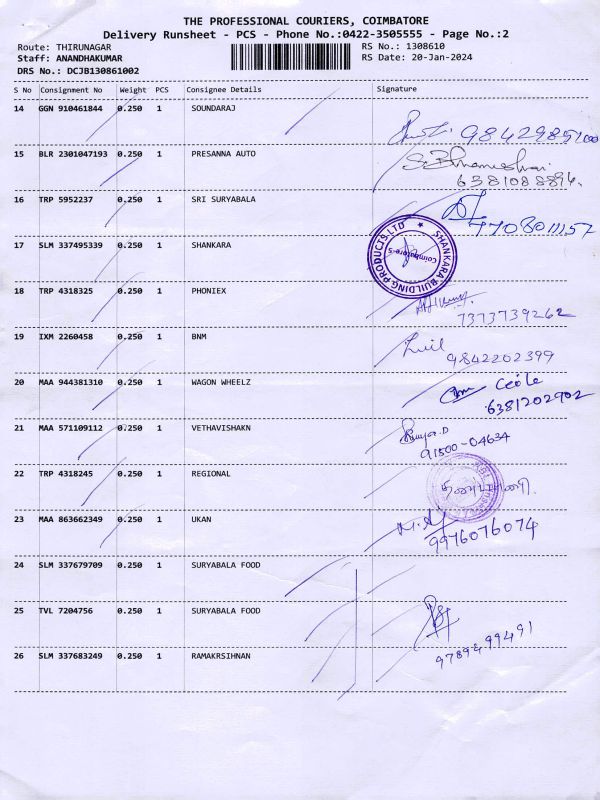 THE PROFESSIONAL COURIERS, COIMBATORE
Delivery Runsheet - PCS - Phone No.:0422-3505555 - Page No.:2
Route: THIRUNAGAR RS No.: 1308610
Staff: ANANDHAKUMAR RS Date: 20-Jan-2024
DRS No.: DCJB130861002
S No Consignment No Weight PCS Consignee Details Signature
14 GGN 910461844 0.250 1 SOUNDARAJ
15 BLR 2301047193 0.250 1 PRESANNA AUTO
6381088894.
16 TRP 5952237 0.250 1 SRI SURYABALA
17 SLM 337495339 0.250 1 SHANKARA
SHANKARA BUILDING PRODUCTS LTD
Coimbatore-5
18 TRP 4318325 0.250 1 PHONIEX
7373739262
19 IXM 2260458 0.250 1 BNM
9842202399
20 MAA 944381310 0.250 1 WAGON WHEELZ
6381202902
21 MAA 571109112 0.250 1 VETHAVISHAKN
91500-04634
22 TRP 4318245 0.250 1 REGIONAL
23 MAA 863662349 0.250 1 UKAN
9976076074
24 SLM 337679709 0.250 1 SURYABALA FOOD
25 TVL 7204756 0.250 1 SURYABALA FOOD
9789499491
26 SLM 337683249 0.250 1 RAMAKRSIHNAN